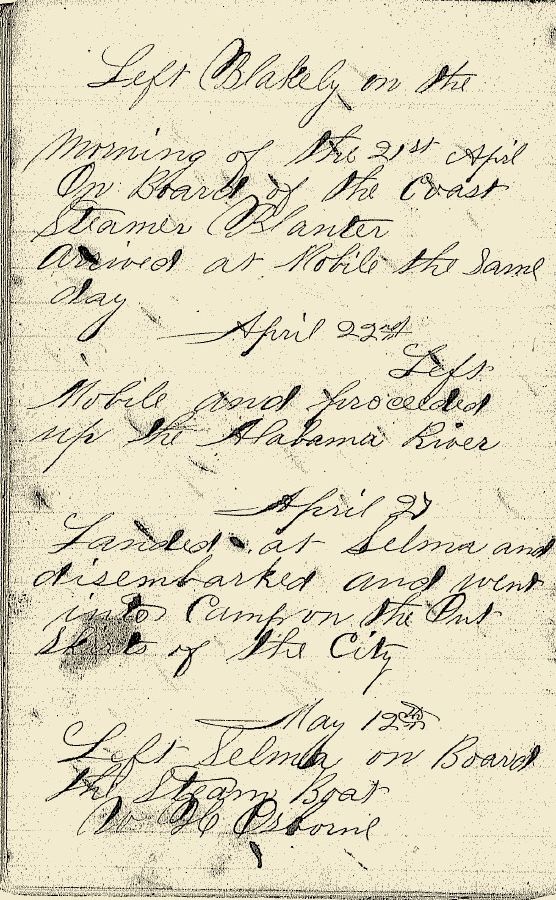 Left Blakely on the
Morning of the 21st April
On Board of the Coast
Steamer Planter
arived at Mobile the Same
day
April 22nd
Left
Mobile and proceeded
up the Alabama River
April 27
Landed at Selma and
disembarked and went
into Camp on the Out
Skirts of the City
May 12th
Left Selma on Board
the Steam Boat
W H Osborne